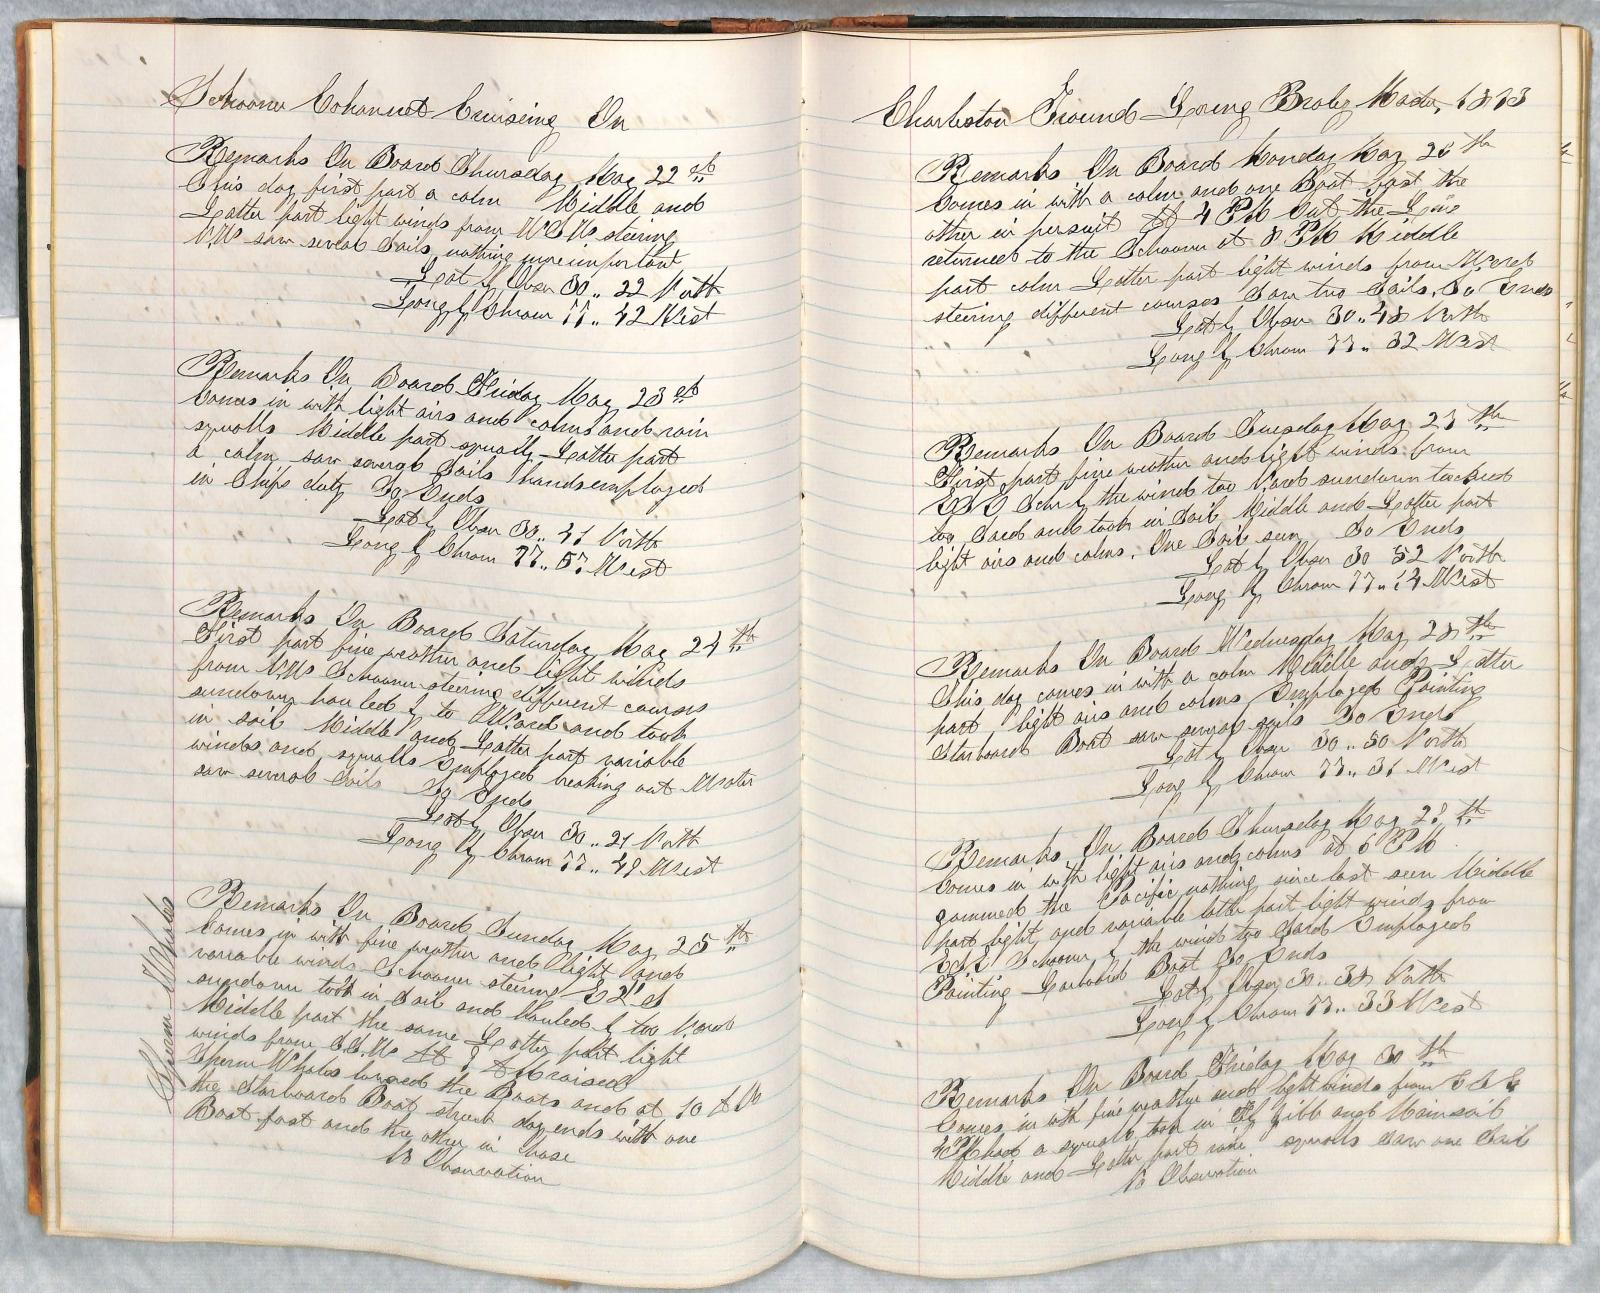 Schooner Cohannet Cruising On
Remarks On Board Thursday May 22nd
This day first part a calm Middle and
Latter part light winds from WSW steering
NW saw several Sails nothing more important
Lat by Obser 30.. 22 North
Long by Chrom 77.. 42 West
Remarks On Board Friday May 23rd
Comes in with light airs and calms and rain
squalls Middle part squally Latter part
a calm saw several Sails hands employed
in Ships duty So Ends
Lat by Obser 30.. 21 North
Long by Chrom 77.. 57 West
Remarks On Board Saturday May 24th
First part fine weather and light winds
from NW Schooner steering different courses
sundown hauled by to Ward and took
in sail Middle and Latter part variable
winds and squalls Employed breaking out Water
saw several Sails So Ends
Lat by Obser 30.. 21 North
Long by Chrom 77.. 49 West
Sperm Whales
Remarks On Board Sunday May 25th
Comes in with fine weather and light and
variable winds Schooner steering
sundown took in Sail and hauled by too Nard
Middle part the same Latter part light
winds from SSW At 9 AM raised
Sperm Whales lowed the Boats and at 10 AM
the Starboard Boat struck day ends with one
Boat fast and the other in Chase
No Observation
Charleston Ground Loring Braley Master 1873
Remarks On Board Monday May 26th
Comes in with a calm and one Boat fast the
other in persuit At 4 PM Cut the Line
returned to the Schooner at 8 PM Middle
part calm Latter part light winds from Ward
steering different courses Saw two Sails. So Ends
Lat by Obser 30.. 48 North
Long by Chrom 77.. 32 West
Remarks On Board Tuesday May 27th
First part fine weather and light winds from
ESE Sch by the wind too Nard sundown tacked
too Sard and took in Sail Middle and Latter part
light airs and calms. One Sail seen So Ends
Lat by Obser 30 52 North
Long by Chrom 77.. 14 West
Remarks On Board Wednesday May 28th
This day comes in with a calm Middle and Latter
part light airs and calms Employed Painting
Starboard Boat saw several sails So Ends
Lat by Obser 30.. 50 North
Long by Chrom 77.. 31 West
Remarks On Board Thursday May 29th
Comes in with light airs and calms at 6 PM
gammed the Pacific nothing since last seen Middle
part light and variable latter part light winds from
ESE Schooner by the wind too Sard Employed
Painting Larboard Boat So Ends
Lat by Obser 30.. 38 North
Long by Chrom 77.. 33 West
Remarks On Board Friday May 30th
Comes in with fine weather and light winds from ESE
4 PM had a squall took in Fly Jibb and Mainsail
Middle and Latter part rain squalls Saw one Sail
No Observation